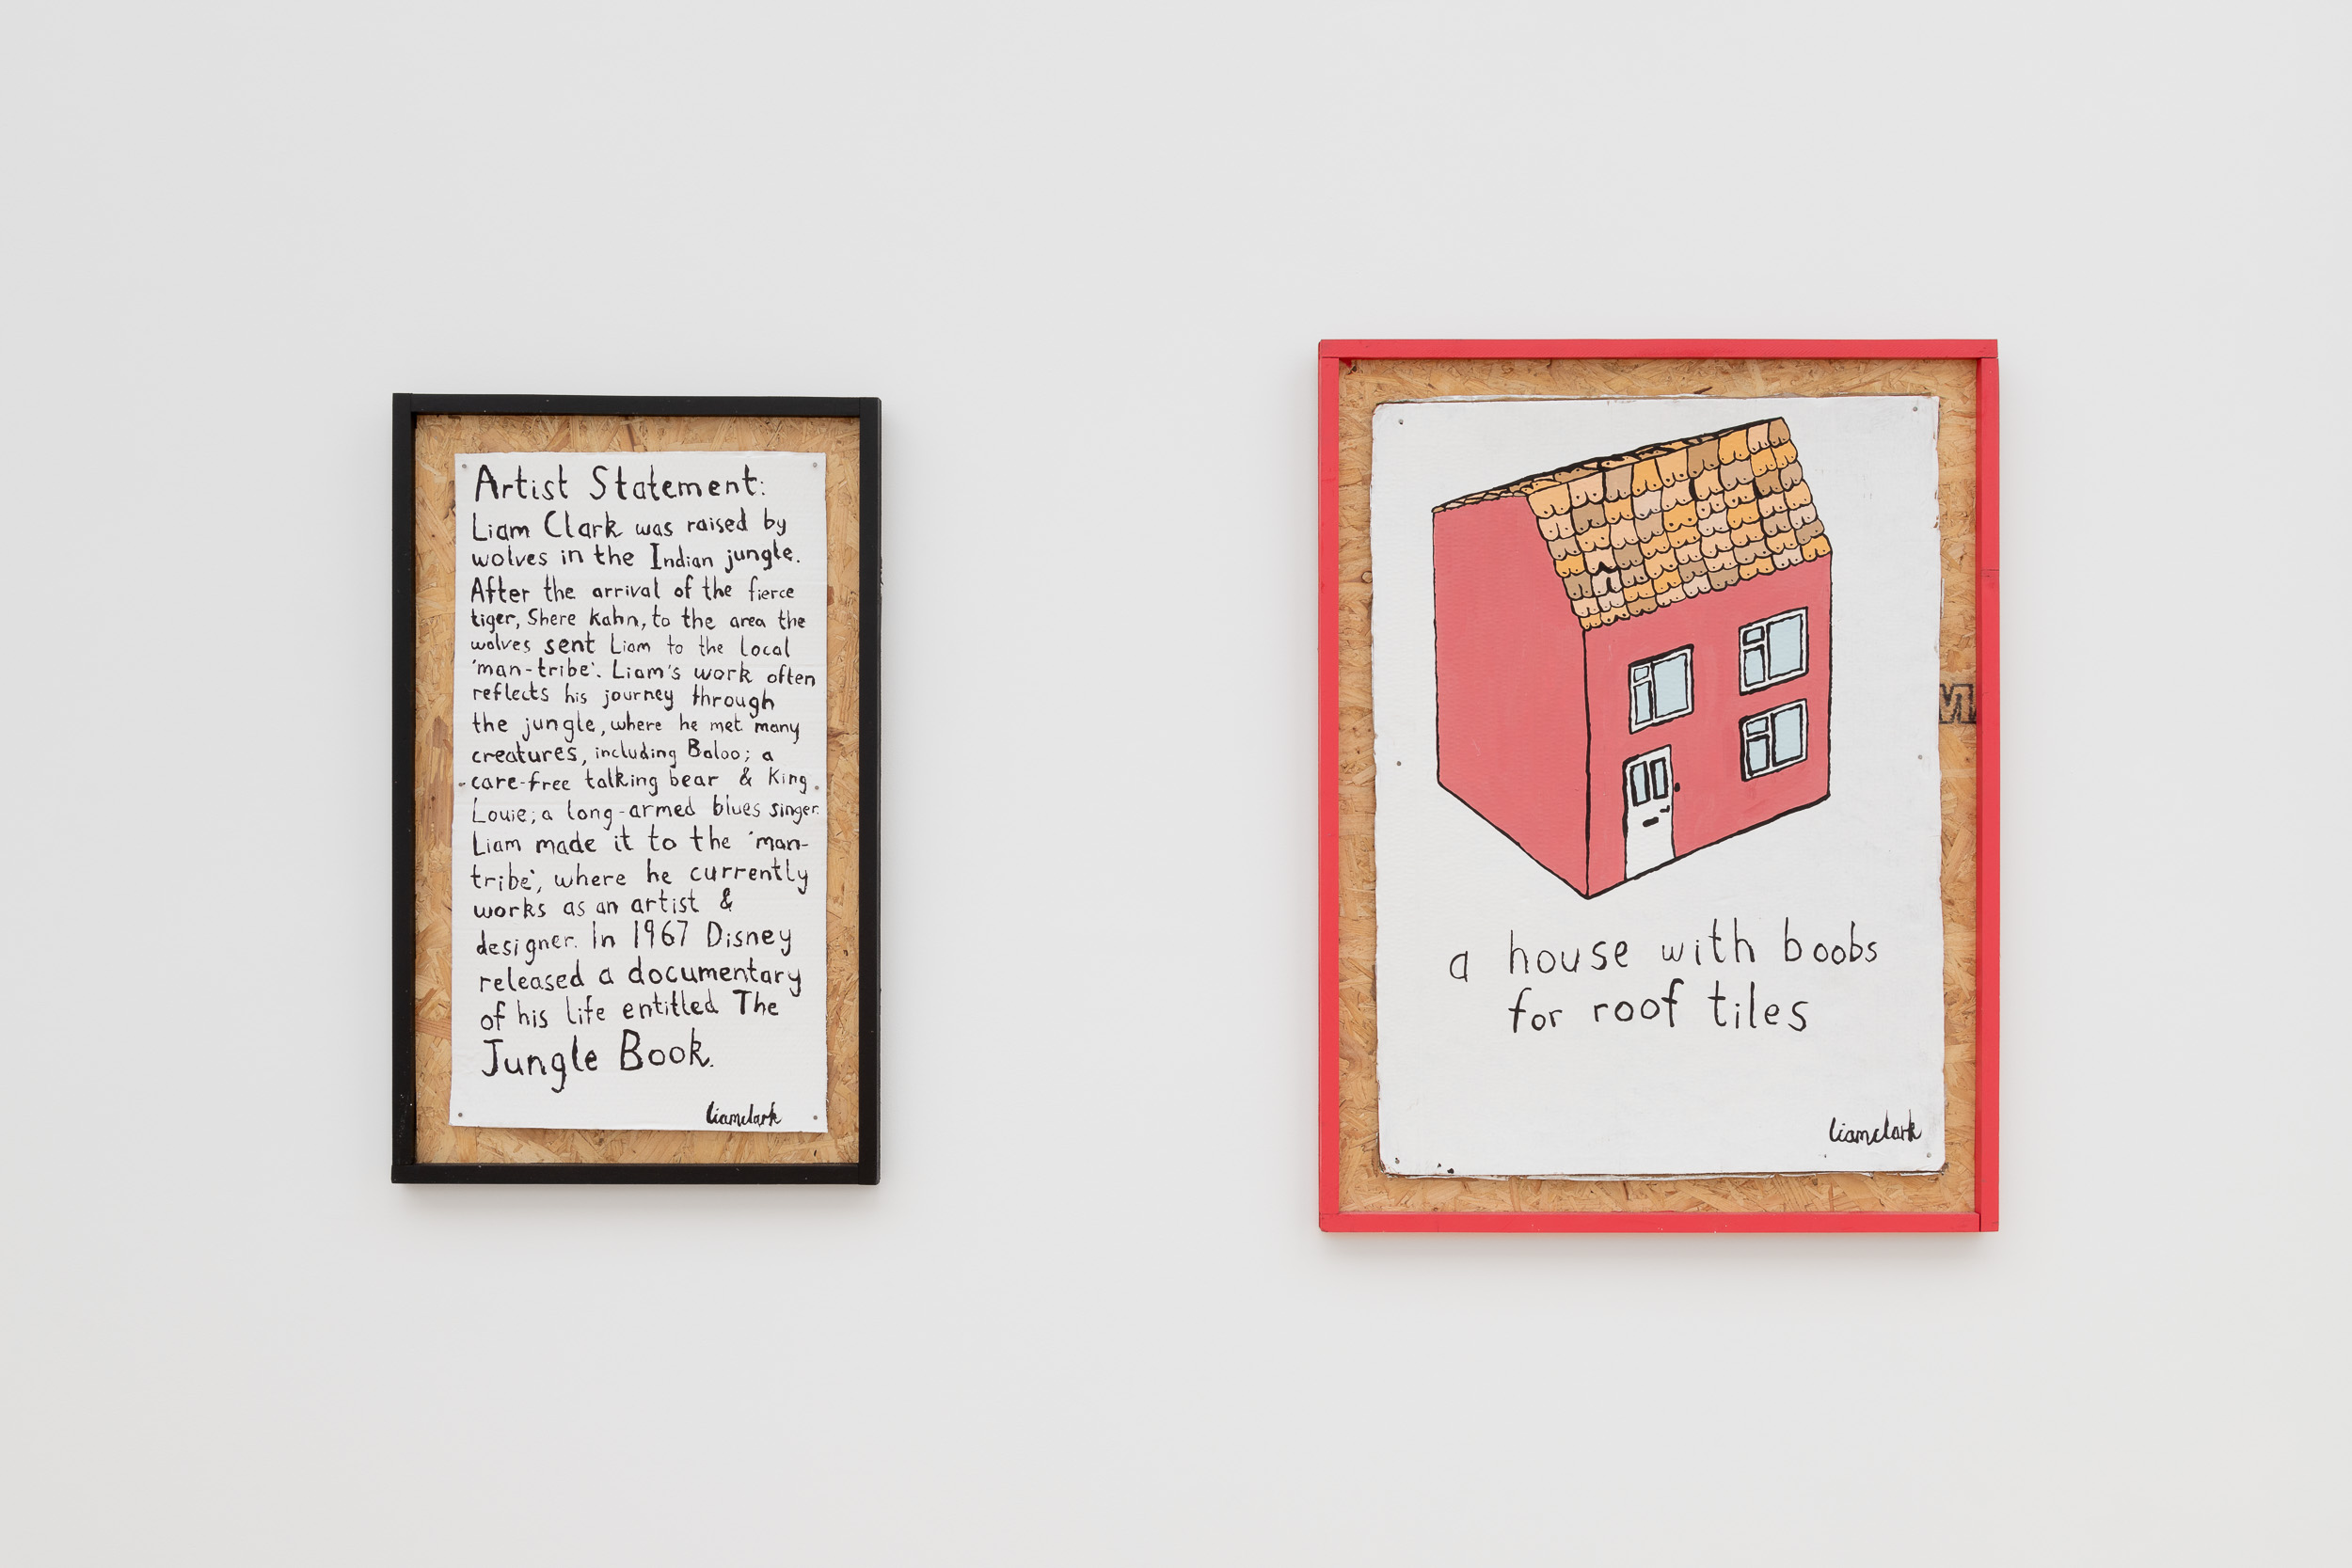 Artist Statement:
Liam Clark was raised by
wolves in the Indian jungle.
After the arrival of the fierce
tiger, Shere Kahn, to the area the
wolves sent Liam to the local
'man-tribe'. Liam's work often
reflects his journey through
the jungle, where he met many
creatures, including Baloo; a
care-free talking bear & King
Louie; a long-armed blues singer.
Liam made it to the 'man-
tribe', where he currently
works as an artist &
designer. In 1967 Disney
released a documentary
of his life entitled The
Jungle Book.
liamclark
a house with boobs
for roof tiles
liamclark